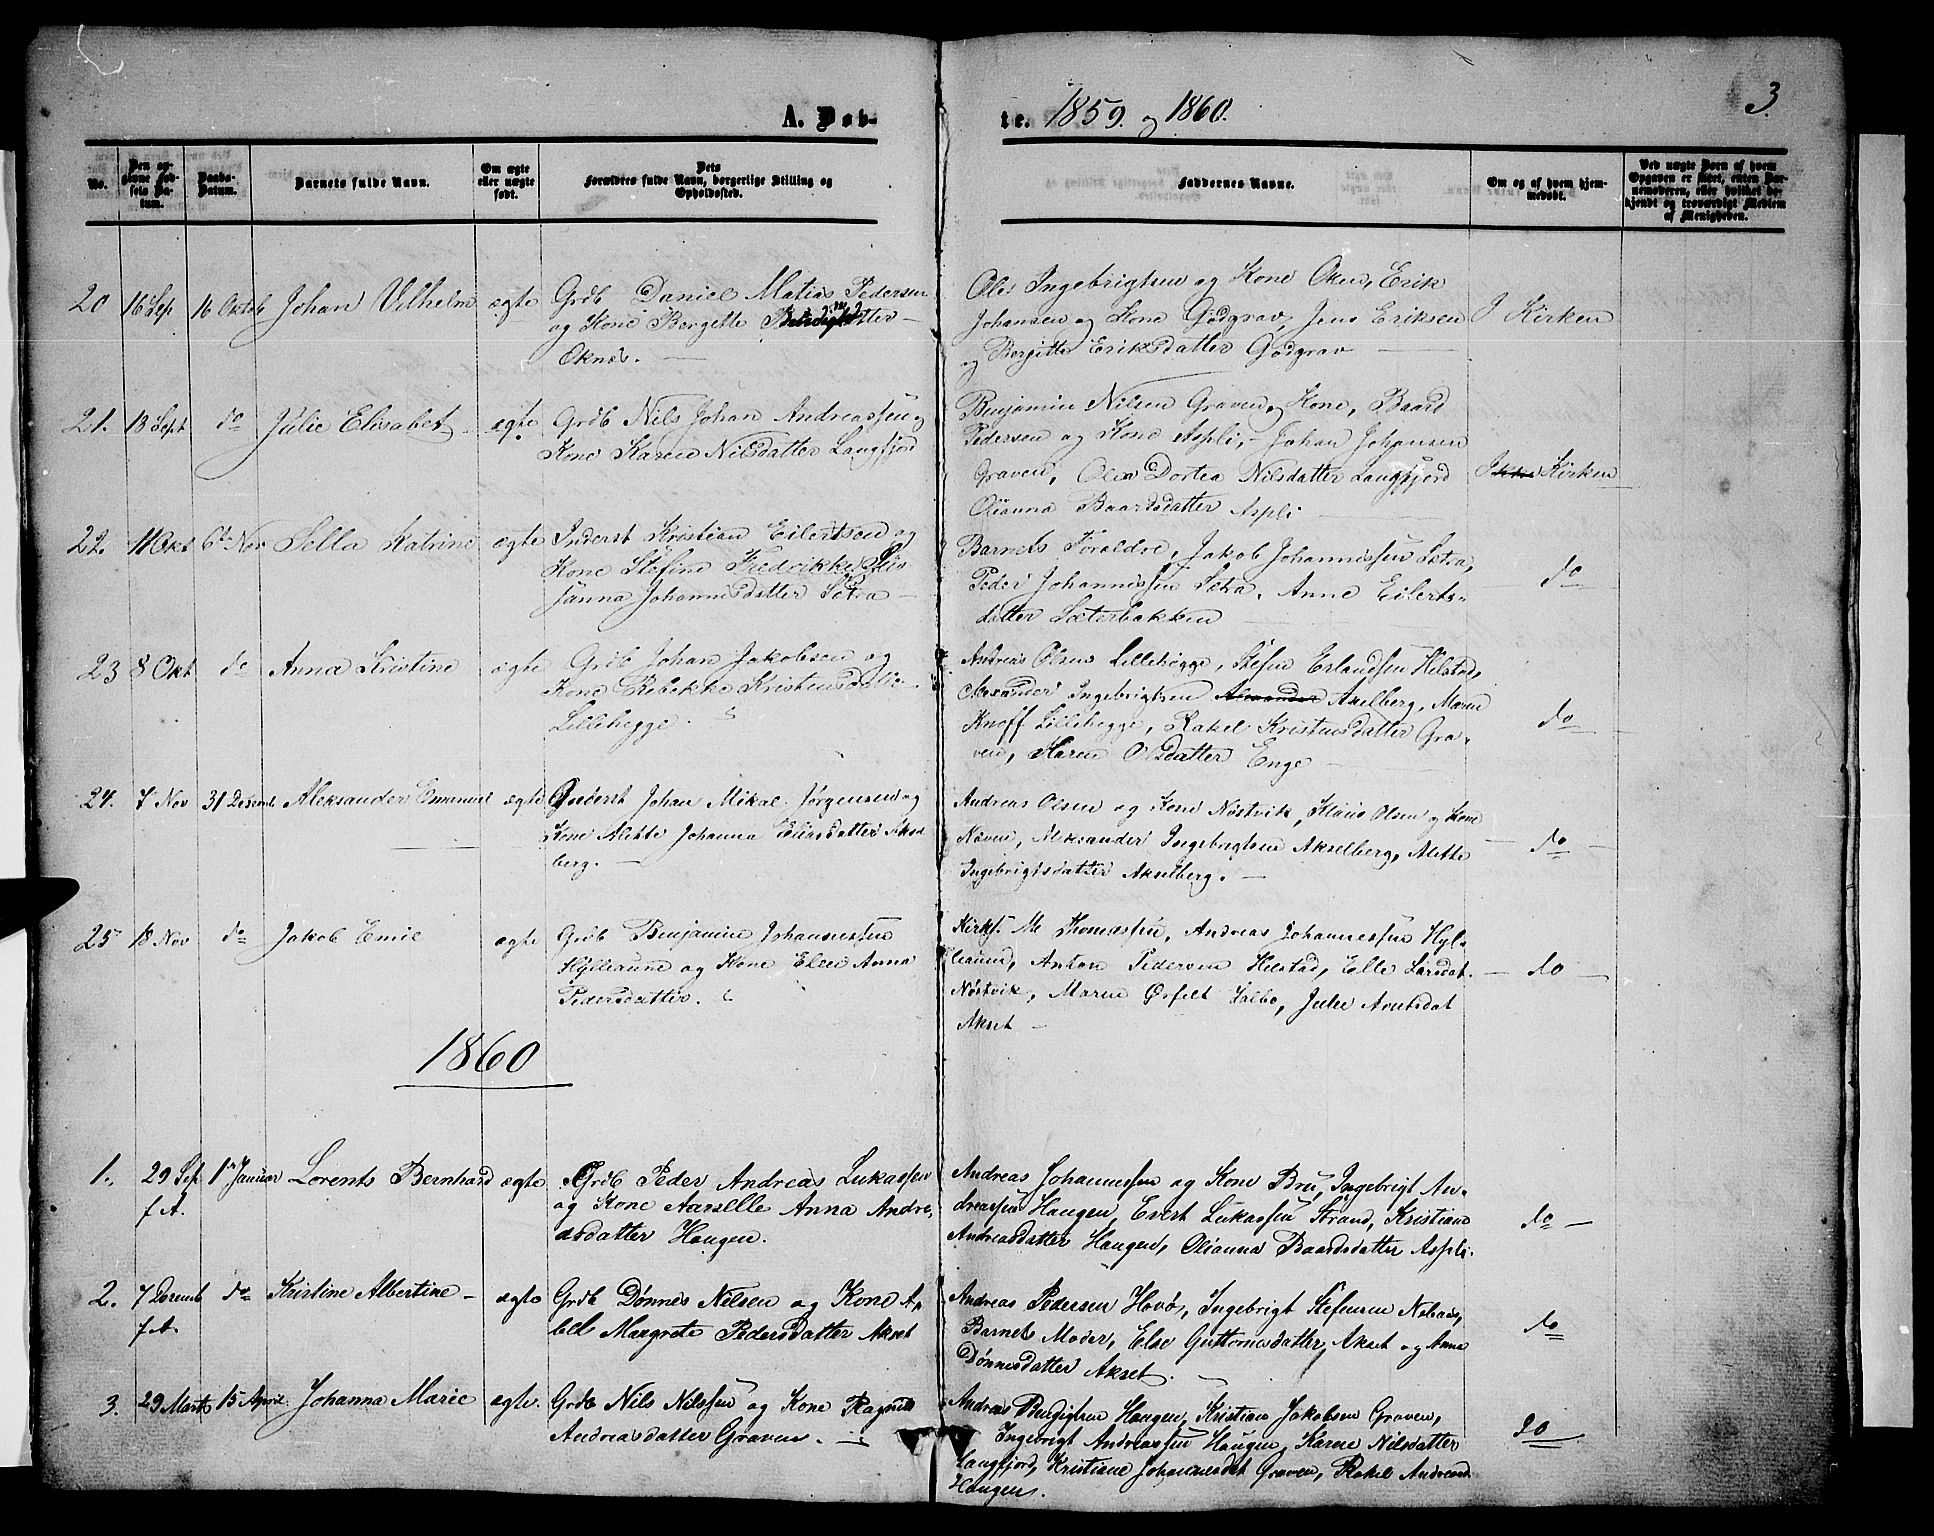 3.
A. Døb-
te. 1859. og 1860.
No.
Den op-
givne Fød-
sels Da-
tum.
Daabs-
Datum.
Barnets fulde Navn.
Om ægte
eller uægte
født.
Dets
Forældres fulde Navn, borgerlige Stilling og
Opholdssted.
Faddernes Navne.
Om og af hvem hjem-
medøbt.
Ved uægte Barn af hvem
Opgaven er skeet, enten Bar-
nemoderen, eller hvilket be-
kjendt og troværdigt Medlem
af Menigheden.
20 16 Sep 16 Oktob Johan Vilhelm ægte
Grdb Daniel Matias Pedersen
og Kone Bergitte
Oknes.
Ole Ingebrigtsen og Kone Oknes, Erik
Johansen og Kone Godgrav, Jens Eriksen
og Bergitte Eriksdatter Godgrav
I Kirken
21. 13 Sept do Julie Elisabet ægte
Grdb Nils Johan Andreassen og
Kone Karen Nilsdatter Langfjord
Benjamin Nilsen Graven og Kone, Baard
Pedersen og Kone Aspli, Johan Johansen
Graven, Olea Dortea Nilsdatter Langfjord
Olianna Baardsdatter Aspli
I Kirken
22. 11 Okt 6te Nov Sella Katrine ægte
Inderst Kristian Eilertsen og
Kone Stefine Fredrikke
Janna Johannisdatter Sætra
Barnets Foraldre, Jakob Johannissen Sætra,
Peder Johannissen Sætra, Anne Eilerts-
datter Sæterbakken
do
23 8 Okt do Anna Kristine ægte
Grdb Johan Jakobsen og
Kone Rebekke Kristensdatter
Lillehegge.
Andreas Olsen Lillehegge, Stefen Erlandsen Hilstad,
Alexander Ingebrigtsen Akselberg, Maren
Knoff Lillehegge, Rakel Kristensdatter Gra-
ven, Karen Olsdatter Enge
do
24. 7 Nov 31 Desemb. Aleksander Emanuel ægte
Inderst Johan Mikal Jørgensen og
Kone Alette Johanna Eliasdatter Aksel
berg.
Andreas Olsen og Kone Nøstvik, Klaus Olsen og Kone
Næven, Aleksander Ingebrigtsen Akselberg, Alette
Ingebrigtsdatter Akselberg.
do
25 18 Nov do Jakob Emil ægte
Grdb Benjamin Johannessen
Hylleaune og Kone Elen Anna
Pedersdatter.
Kirks. M. Thomassen, Andreas Johannessen Hyl-
leaune, Anton Pedersen Hilstad, Elle Larsdat.
Nøstvik, Maren Ørfelt Valbo, Julie Arntsdat
Akset
do
1860
1. 29 Sep f. A. 1ste Januar Lorents Bernhard ægte
Grdb Peder Andreas Lukassen
og Kone Aarselle Anna Andre-
asdatter Haugen.
Andreas Johannessen og Kone Bru, Ingebrigt An-
dreassen Haugen, Evert Lukassen Strand, Kristiane
Andreasdatter Haugen, Olianna Baardsdatter Aspli.
do
2. 7 Decemb f. A. do Kristine Albertine ægte
Grdb Dønnes Nilsen og Kone A-
bel Margrete Pedersdatter Akset
Andreas Pedersen Hovø, Ingebrigt Stefensen Nebaas,
Barnets Moder, Else Guttormsdatter Akset og Anna
Dønnesdatter Akset.
do
3. 29 Marts 15 April Johanna Marie ægte.
Grdb Nils Nilssen og Kone Ragnel
Andreasdatter Graven.
Andreas Bendigtsen Haugen, Kristian Jakobsen Graven,
Ingebrigt Andreassen Haugen, Karen Nilsdatter
Langfjord, Kristiane Johannesdat Graven, Rakel Andreasd.
Haugen.
do